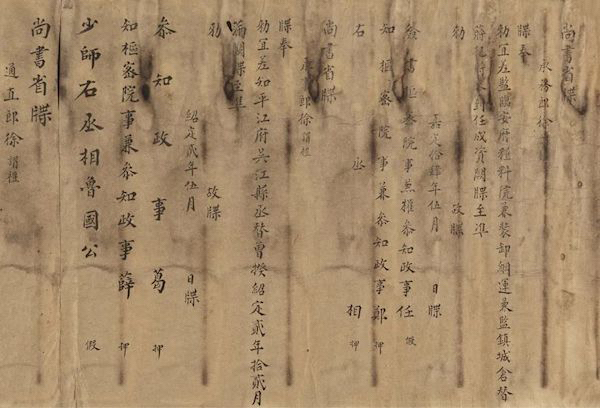 尚書省牒
承務郎徐謂禮
牒奉
勑宜差監臨安府糧料院兼裝卸綱運兼監鎮城倉替
蔣 到任成資闕牒至準
勑故牒
嘉定拾肆年伍月 日牒
僉書樞密院事兼權參知政事任 假
知樞密院事兼參知政事鄭 押
右丞相 押
尚書省牒
承 郎徐謂禮
牒奉
勑宜差知平江府吳江縣丞替曾揆紹定貳年拾貳月
滿闕牒至準
勑故牒
紹定貳年伍月 日牒
參知政事葛 押
知樞密院事兼參知政事薛 押
少師右丞相魯國公 假
尚書省牒
通直郎徐謂禮